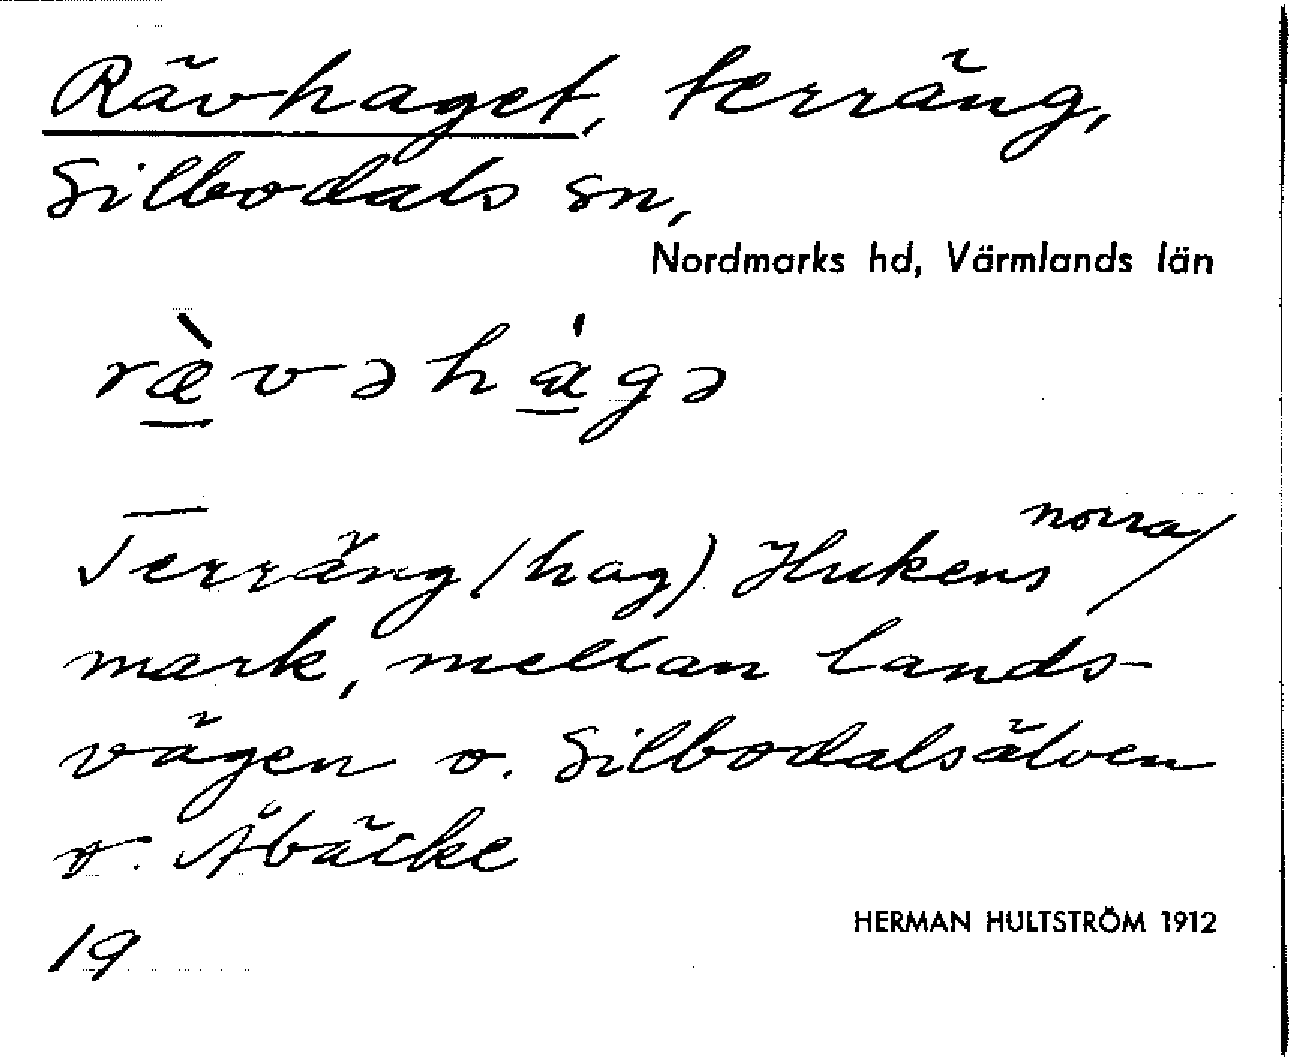 Rävhaget, terräng,
Silbodals sn,
Nordmarks hd, Värmlands län
ræ̀vəhágə
norra
Terräng (hag) Hukens
mark, mellan lands-
vägen o. Silbodalsälven
o. Åbäcke
19
HERMAN HULTSTRÖM 1912